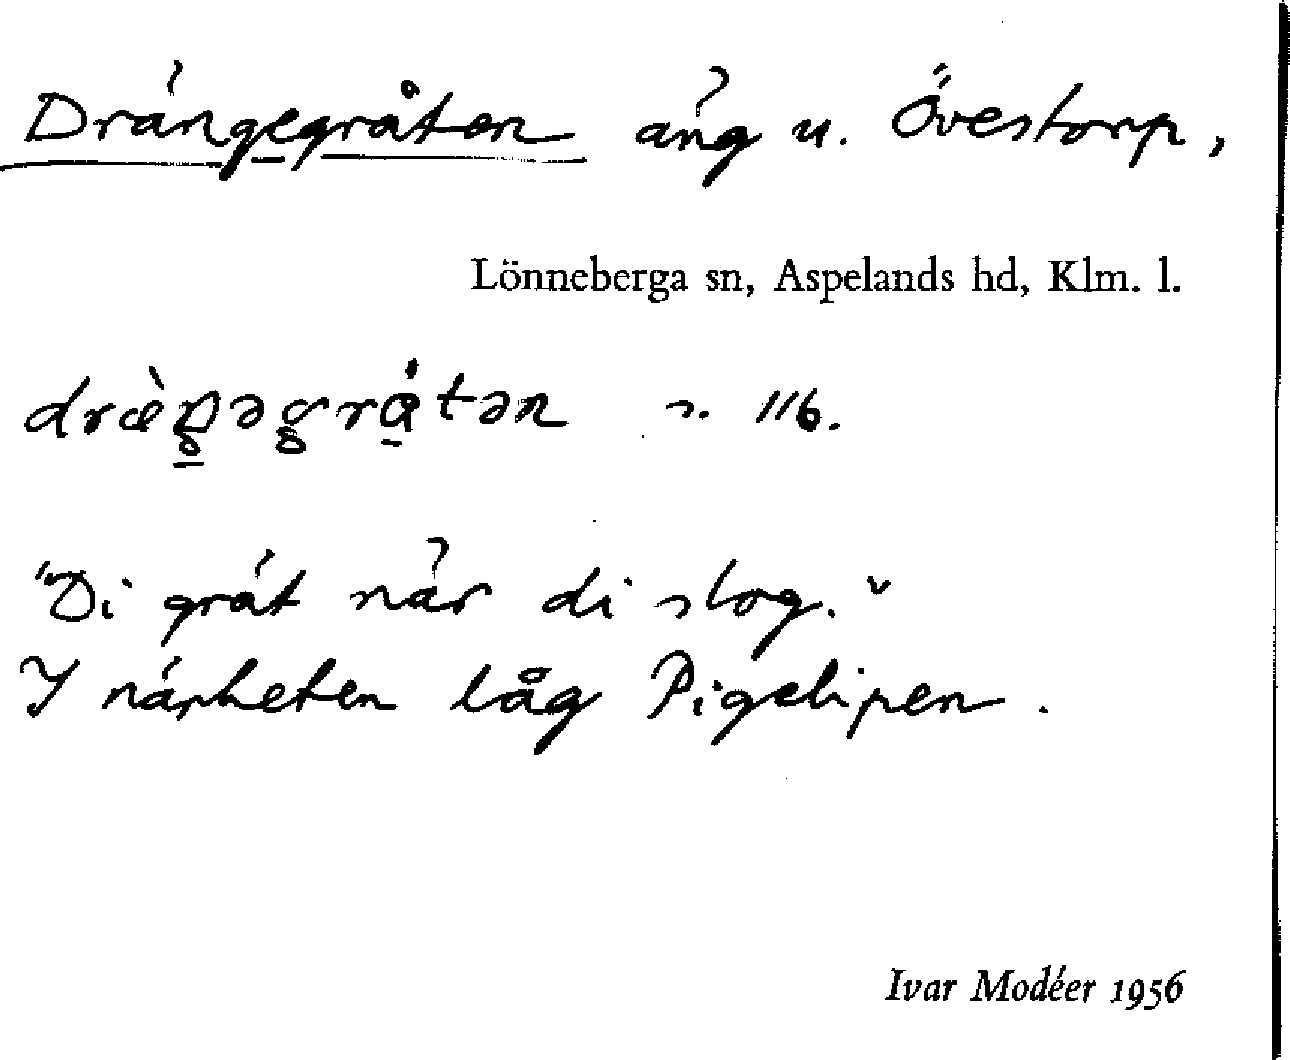 Drängegråten äng u. Övestorp,
Lönneberga sn, Aspelands hd, Klm. l.
s. 116.
"Di grät när di slog."
I närheten låg Pigelipen.
Ivar Modéer 1956